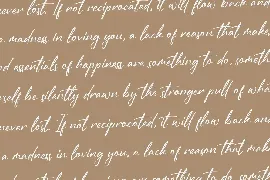 never lost. If not reciprocated, it will flow back and
a madness in loving you, a lack of reason that make
d essentials of happiness are something to do, someth
self be silently drawn by the stranger pull of wha
never lost. If not reciprocated, it will flow back an
a madness in loving you, a lack of reason that mak
are something to do, so